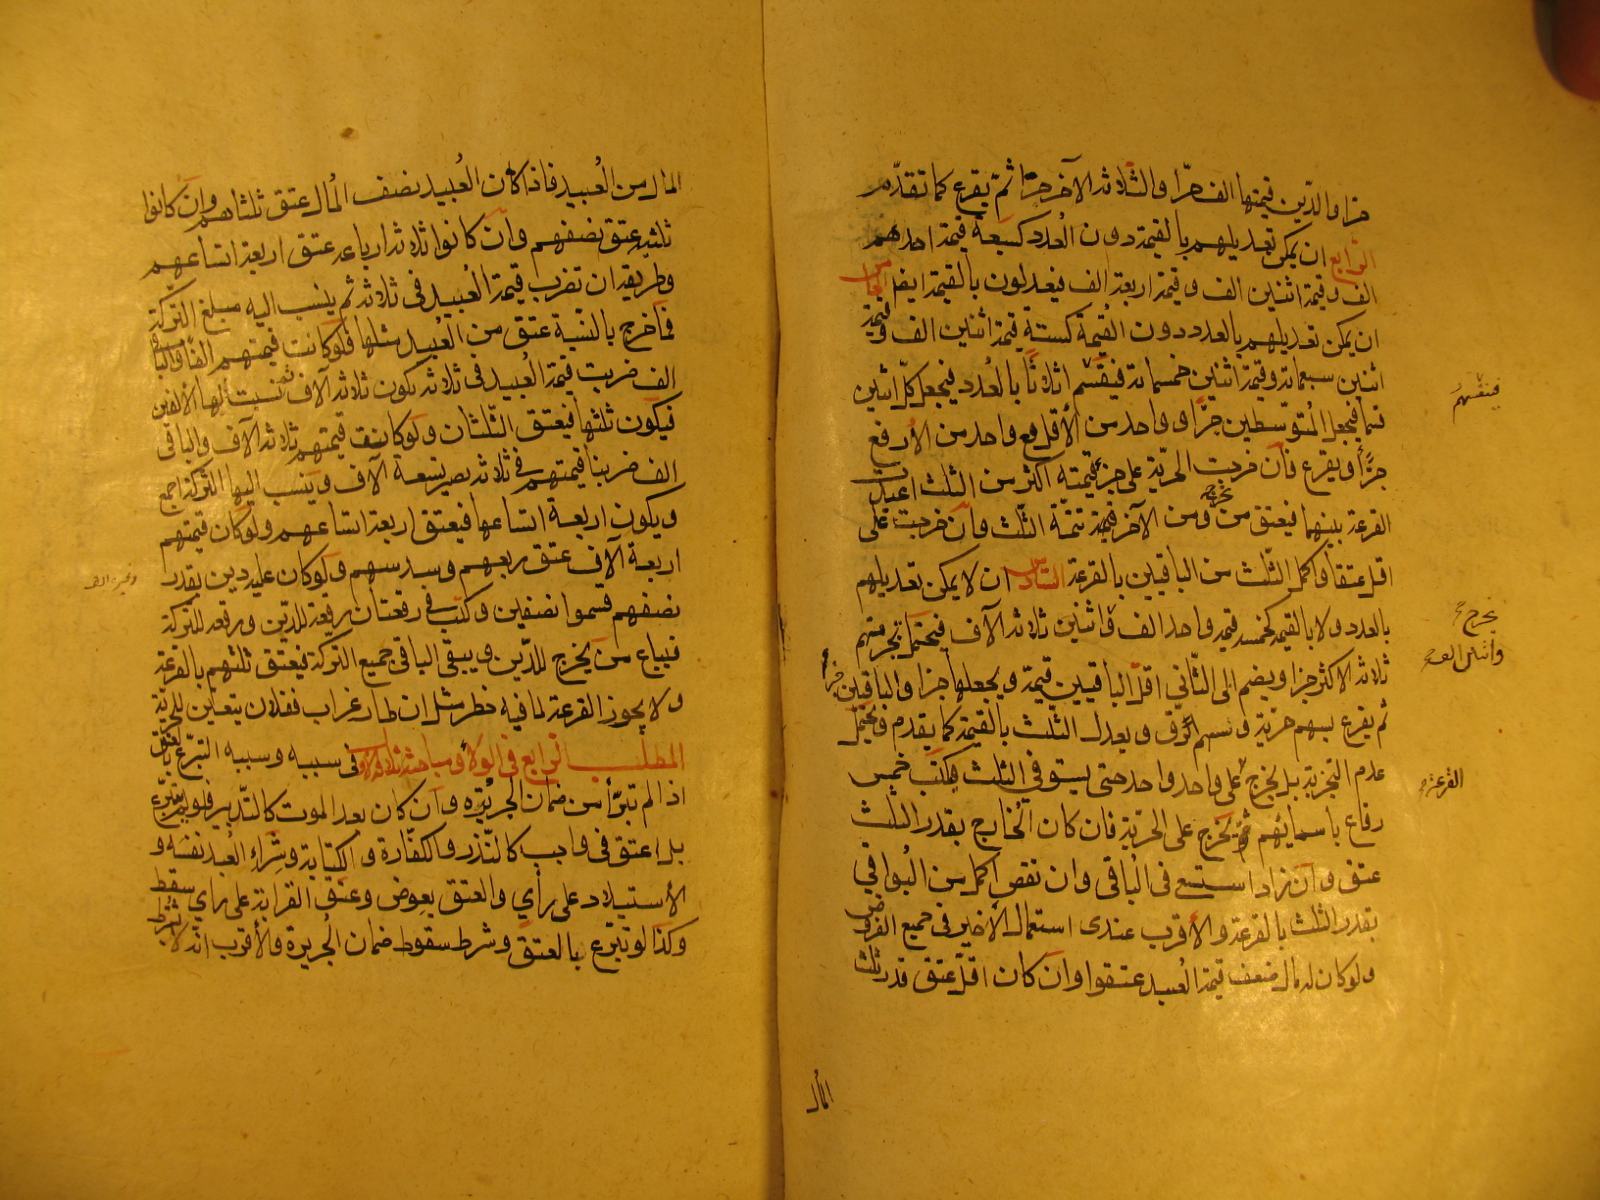 جزا والذين قيمتها الف جزا والثلاثة الآخر جزا ثم يقرع كما تقدم
الرابع ان يمكن تعديلهم بالقيمة دون العدد كسبعة قيمة احدهم
الف وقيمة اثنين الف وقيمة اربعة الف فيعدلون بالقيمة ايضا الخامس
ان يمكن تعديلهم بالعدد دون القيمة كستة قيمة اثنين الف وقيمة
اثنين سبعمائة وقيمة اثنين خمسمائة فيقسم اثلاثا بالعدد فيجعل كل اثنين
قسما فيجعل المتوسطين جزا وواحد من الأقل مع واحد من الأرفع
جزأ ويقرع فان خرجت الحرية على جزء قيمته اكثر من الثلث اعيدت
القرعة بينهما فيعتق من يخرج ومن الآخر تتمة الثلث وان خرجت على
اقل عتقا واكمل الثلث من الباقيين بالقرعة السادس ان لا يمكن تعديلهم
بالعدد ولا بالقيمة كخمسة قيمة واحد الف واثنين ثلاثة آلاف فيحتمل تجزيتهم
ثلاثة الاكثر جزا ويضم الى الثاني اقل الباقيين قيمة ويجعلها جزا والباقيين جزا
ثم يقرع بسهم حرية وسهم رق ويعدل الثلث بالقيمة كما يقدم ويحتمل
عدم التجزية بل يخرج على واحد واحد حتى يستوفي الثلث فيكتب خمس
رقاع باسمائهم ثم يخرج على الحرية فان كان الخارج بقدر الثلث
عتق وان زاد استسعى في الباقي وان نقص اكمل من البواقي
بقدر الثلث بالقرعة والأقرب عندي استعمال الأخير في جميع الفروض
ولو كان له مال ضعف قيمة العبيد عتقوا وان كان اقل عتق قدر ثلث
فيقسم
يخرج
واثنين الف
القرعة
المال
المال من العبيد فاذا كان العبيد نصف المال عتق ثلثاهم وان كانوا
ثلثيه عتق نصفهم وان كانوا ثلاثة ارباعه عتق اربعة اتساعهم
وطريقه ان تضرب قيمة العبيد في ثلاثة ثم ينسب اليه مبلغ التركة
فما خرج بالنسبة عتق من العبيد مثلها فلو كانت قيمتهم الفا والباقي
الف ضربت قيمة العبيد في ثلاثة تكون ثلاثة آلاف ثم نسبت اليها الألفين
فيكون ثلثها فيعتق الثلثان ولو كانت قيمتهم ثلاثة الآف والباقي
الف ضربنا قيمتهم في ثلاثة يصير تسعة الآف وينسب اليها التركة اجمع
ويكون اربعة اتساعها فيعتق اربعة اتساعهم ولو كان قيمتهم
اربعة الآف عتق ربعهم وسدسهم ولو كان عليه دين بقدر
نصفهم قسموا نصفين وكتب في رقعتان رقعة للدين ورقعة للتركة
فيباع من يخرج للدين ويبقى الباقي جميع التركة فيعتق ثلثهم بالقرعة
ولا يجوز القرعة لما فيه خطر مثل ان طار غراب ففلان يتعين للحرية
المطلب الرابع في الولاء ومباحثه ثلاثة الاول في سببه وسببه التبرع بالعتق
اذا لم تبرأ من ضمان الجريرة وان كان بعد الموت كالتدبير فلو لم يتبرع
بل اعتق في واجب كالنذر والكفارة والكتابة وشراء العبد نفسه و
الاستيلاد على رأي والعتق بعوض وعتق القرابة على رأي سقط
وكذا لو تبرع بالعتق وشرط سقوط ضمان الجريرة والأقرب انه لا يشترط